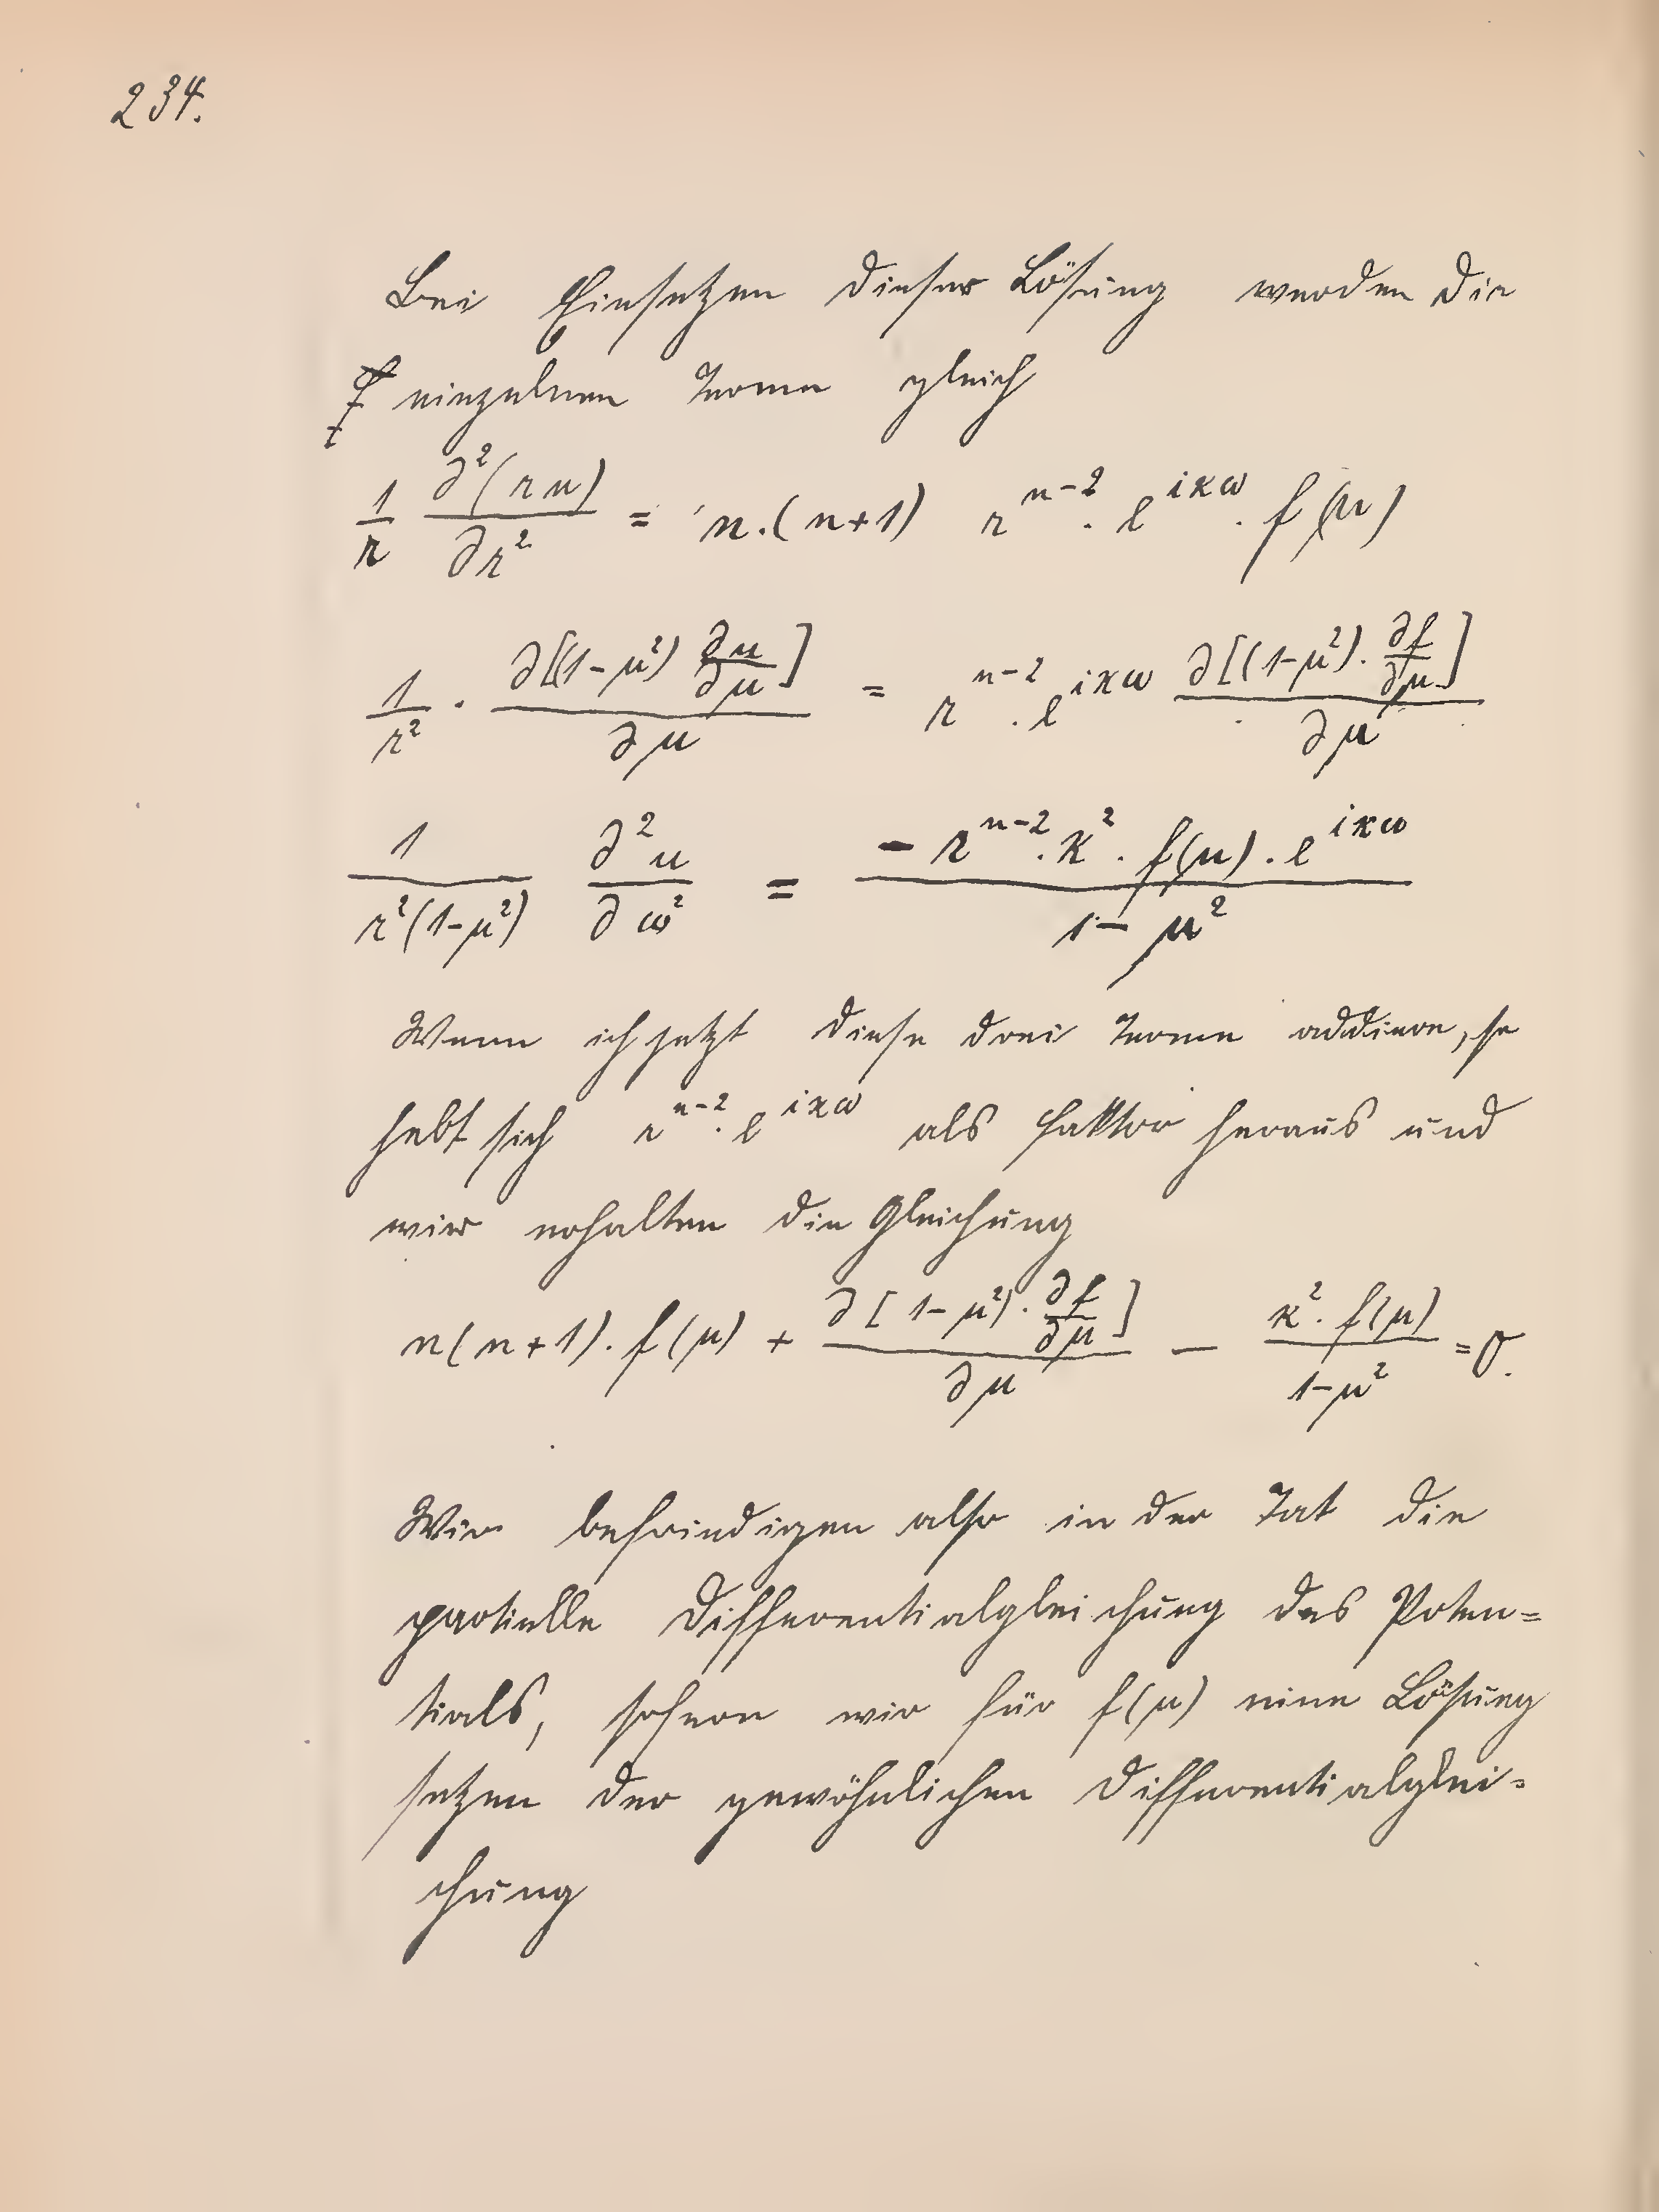 234.
Bei Einsetzen dieser Lösung werden die
einzelnen Terme gleich
1/r ∂²(ru)/∂r² = n.(n+1) r^{n-2} . e^{iκω} . f(μ)
1/r² . ∂[(1-μ²) ∂u/∂μ]/∂μ = r^{n-2} . e^{iκω} ∂[(1-μ²) . ∂f/∂μ]/∂μ
1/(r²(1-μ²)) ∂²u/∂ω² = (- r^{n-2} . κ² . f(μ) . e^{iκω})/(1-μ²)
Wenn ich jetzt diese drei Terme addiere, so
hebt sich r^{n-2} . e^{iκω} als Faktor heraus und
wir erhalten die Gleichung
n(n+1) . f(μ) + ∂[1-μ²) . ∂f/∂μ]/∂μ - (κ² . f(μ))/(1-μ²) = 0.
Wir befriedigen also in der Tat die
partielle Differentialgleichung des Poten=
tials, sofern wir für f(μ) eine Lösung
setzen der gewöhnlichen Differentialglei=
chung